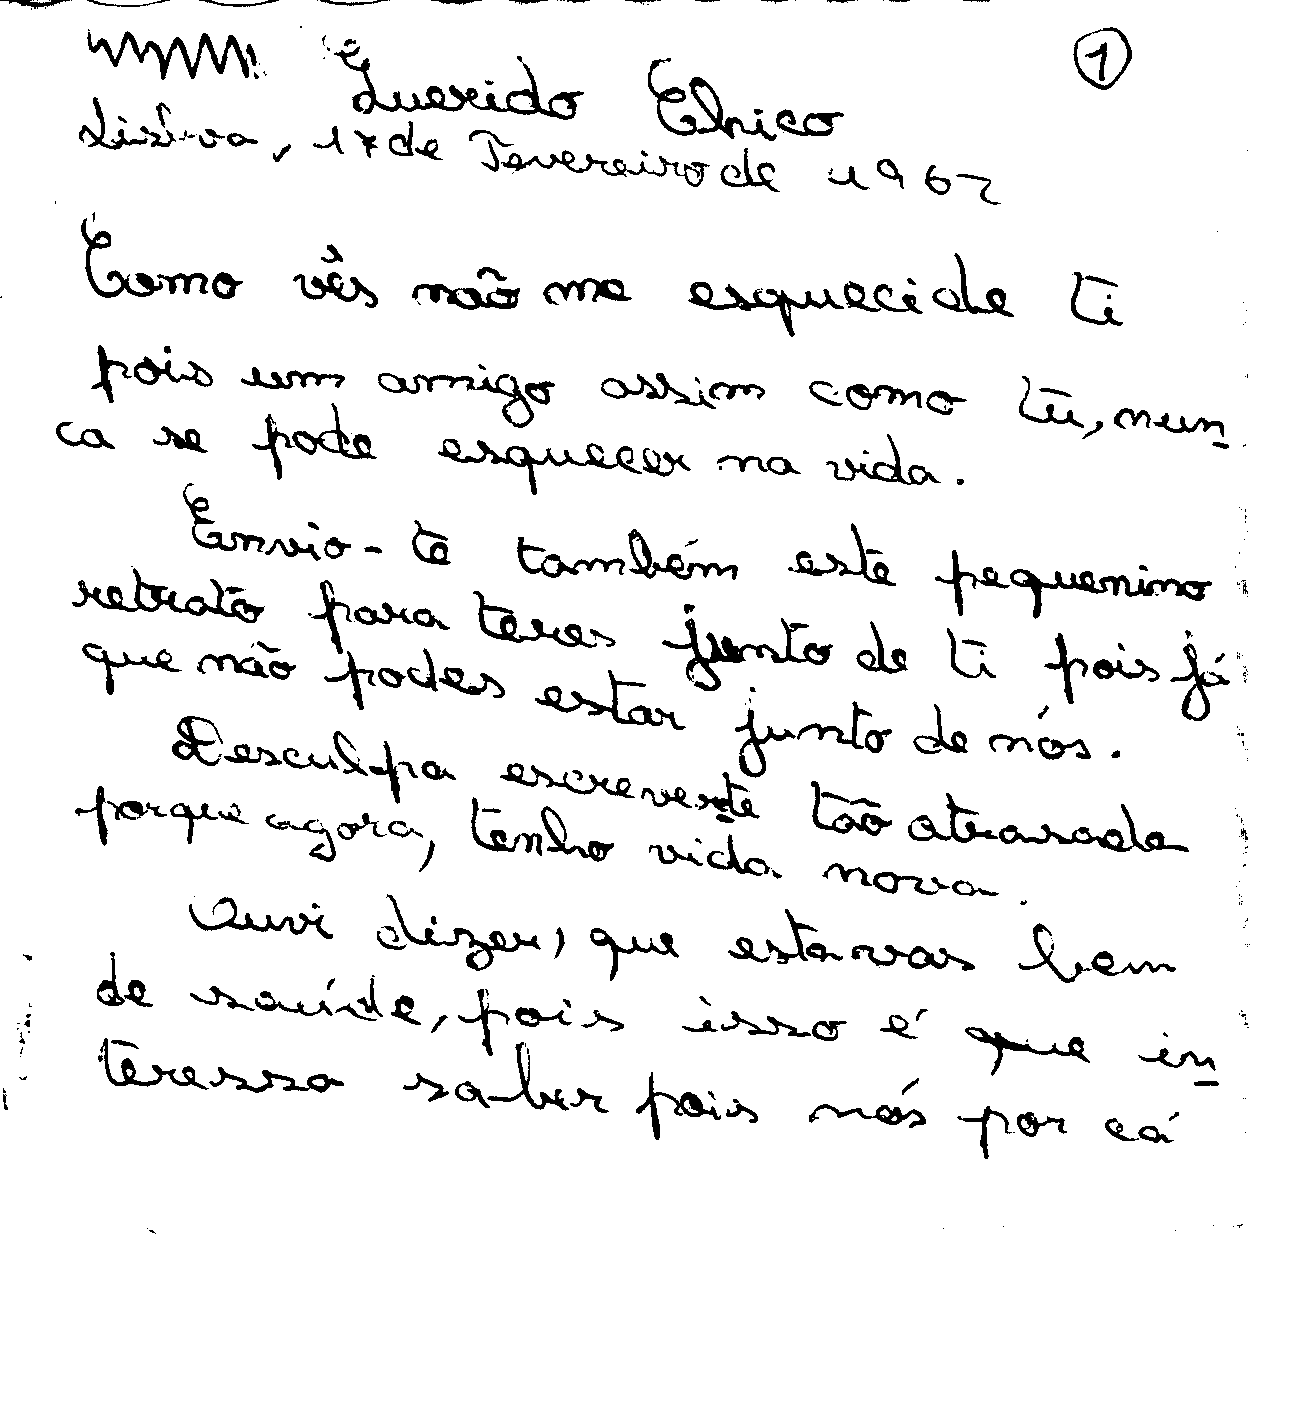 1
Querido Chico
Lisbva, 17 de Fevereiro de 1967
Como vês não me esqueci de ti
pois um amigo assim como tu, nun
ca se pode esquecer na vida.
Envio-te também este pequenino
retrato para teres junto de ti pois já
que não podes estar junto de nós.
Desculpa escrevente tão atrasada
porque agora, tenho vida nova.
Ouvi dizer, que estavas bem
de saúde, pois isso é que in
teressa saber pois nós por cá